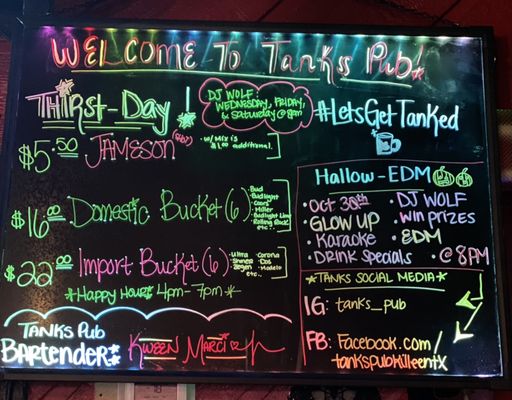 Welcome To Tanks Pub!
THIRST-DAY!
DJ WOLF:
WEDNESDAY, FRIDAY,
& SATURDAY @ 8pm
#LetsGetTanked
$5.50 JAMESON
• w/ Mix is
$1.00 additional.
$16.00 Domestic Bucket (6)
• Bud
• Budlight
• Coors
• Miller
• Budlight Lime
• Rolling Rock
etc..
$22.00 Import Bucket (6)
• Ultra • Corona
• Shiner • Dos
• Modelo
etc..
*Happy Hour* 4pm-7pm*
TANKS PUB
BARTENDER:
KWEEN MARCI
Hallow-EDM
• OCT 30th
• GLOW UP
• Karaoke
• DRINK Specials
• DJ WOLF
• WIN PRIZES
• EDM
• @ 8PM
*TANKS SOCIAL MEDIA*
IG: tanks_pub
FB: Facebook.com/
tankspubkilleentx